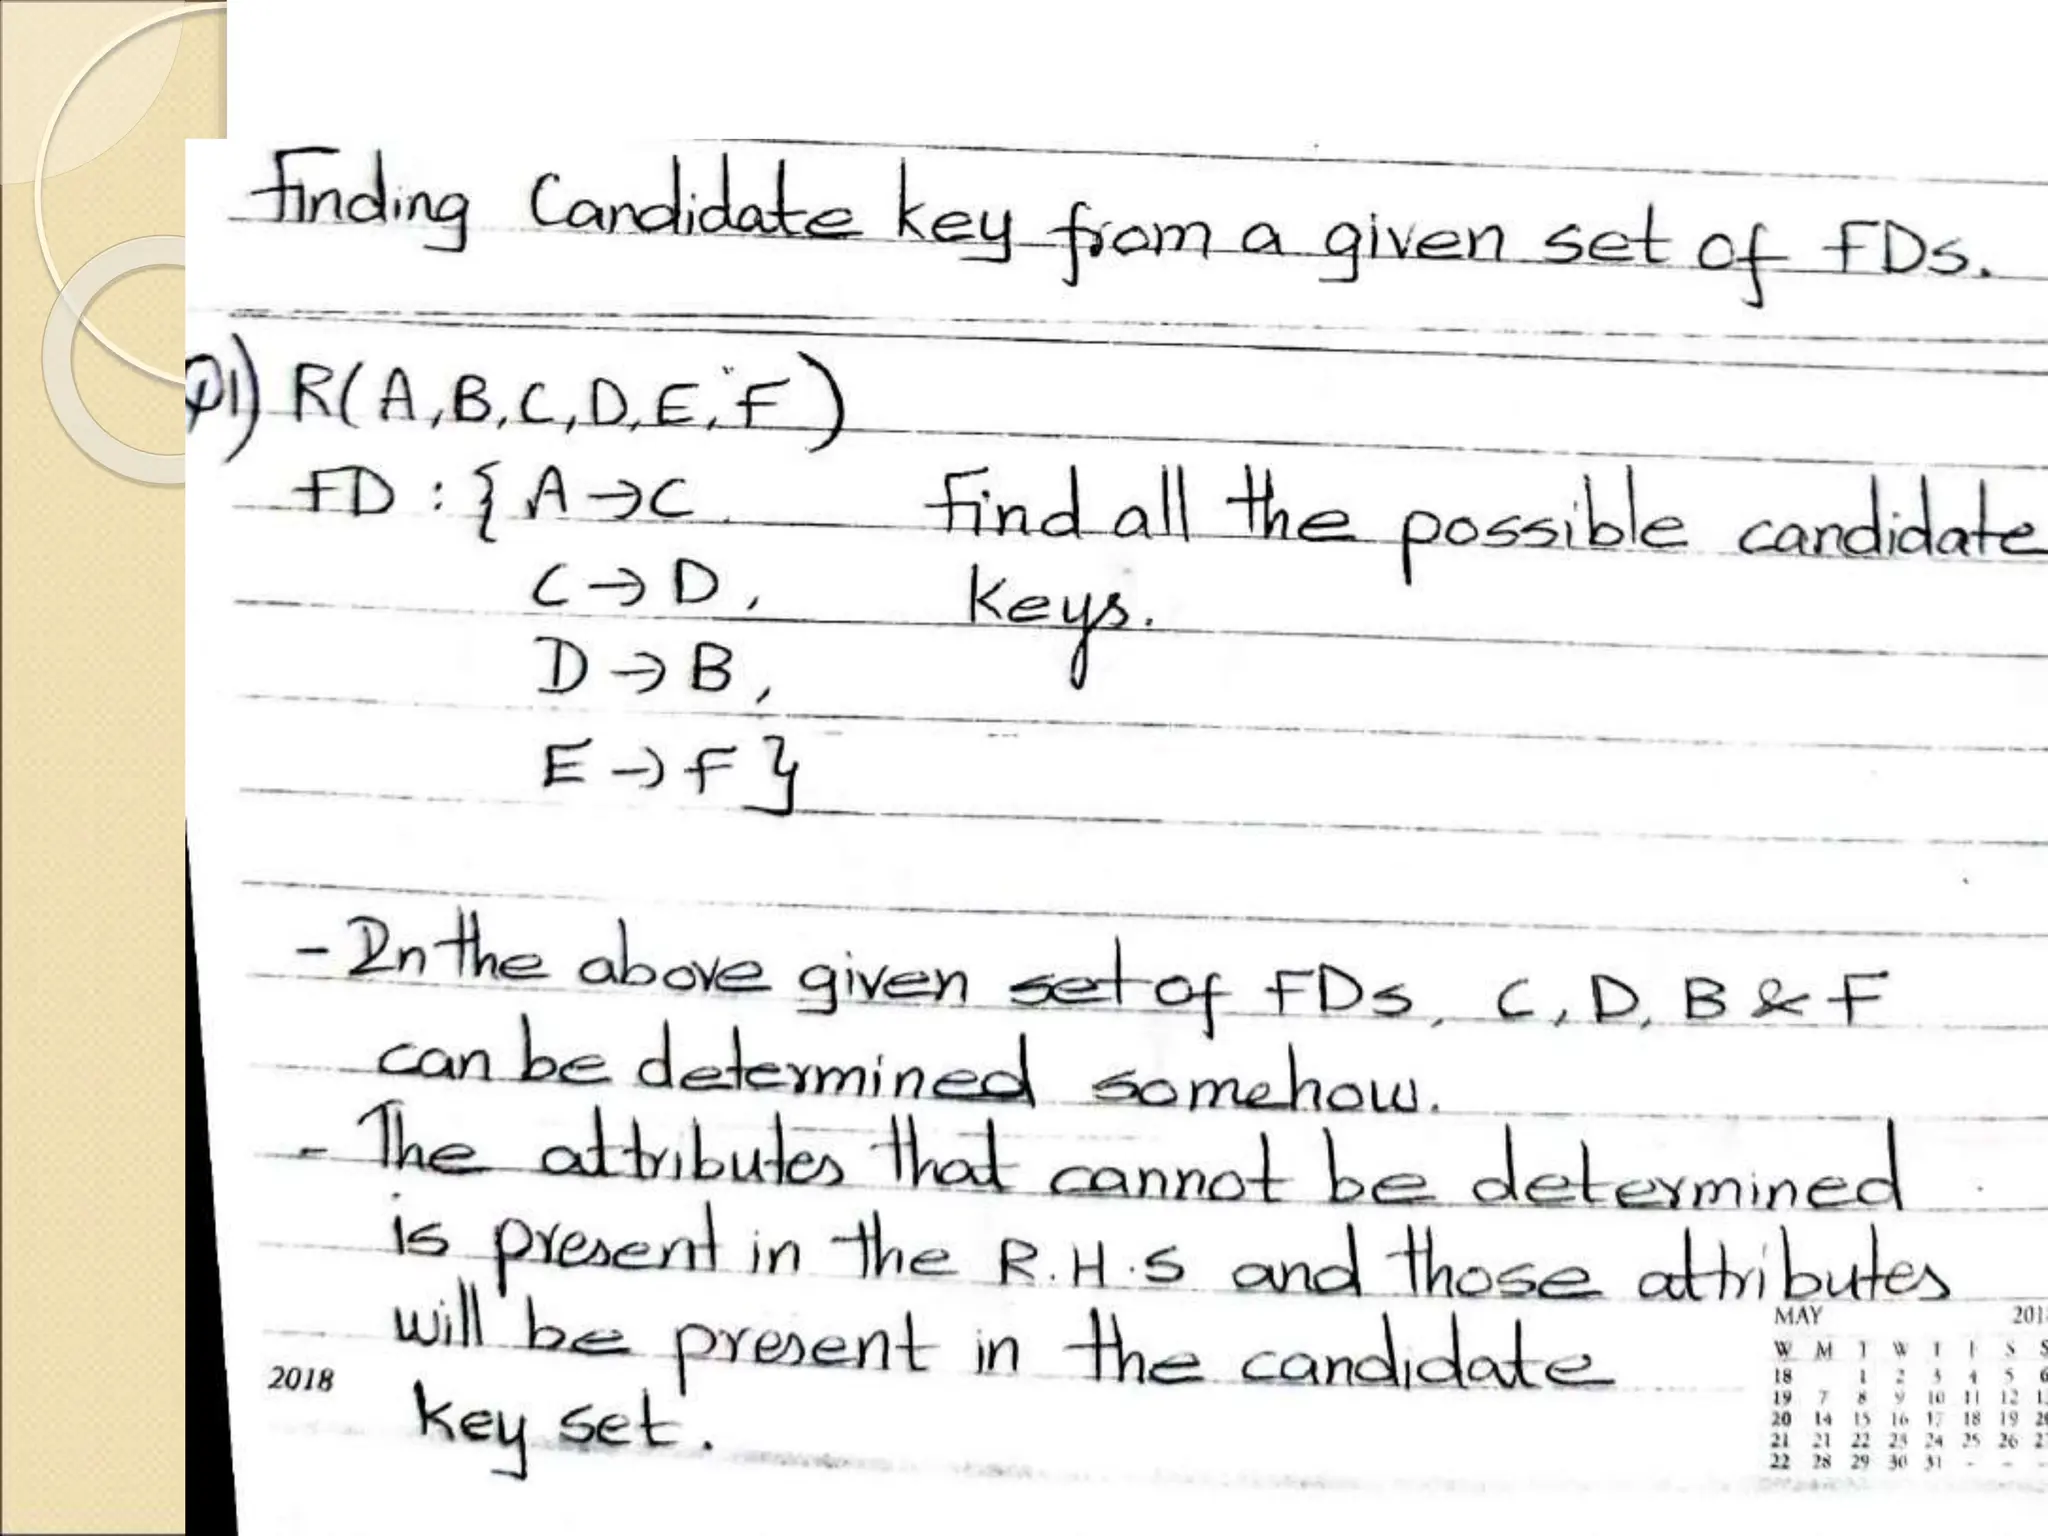 Finding Candidate key from a given set of FDs.
Q1) R(A,B,C,D,E,F)
FD : { A→C Find all the possible candidate
C→D, keys.
D→B,
E→F}
- In the above given set of FDs, C, D, B & F
can be determined somehow.
- The attributes that cannot be determined
is present in the R.H.S and those attributes
will be present in the candidate
key set.
2018
MAY 201
W M T W T F S S
18 1 2 3 4 5 6
19 7 8 9 10 11 12
20 14 15 16 17 18 19
21 21 22 23 24 25 26
22 28 29 30 31 - - -